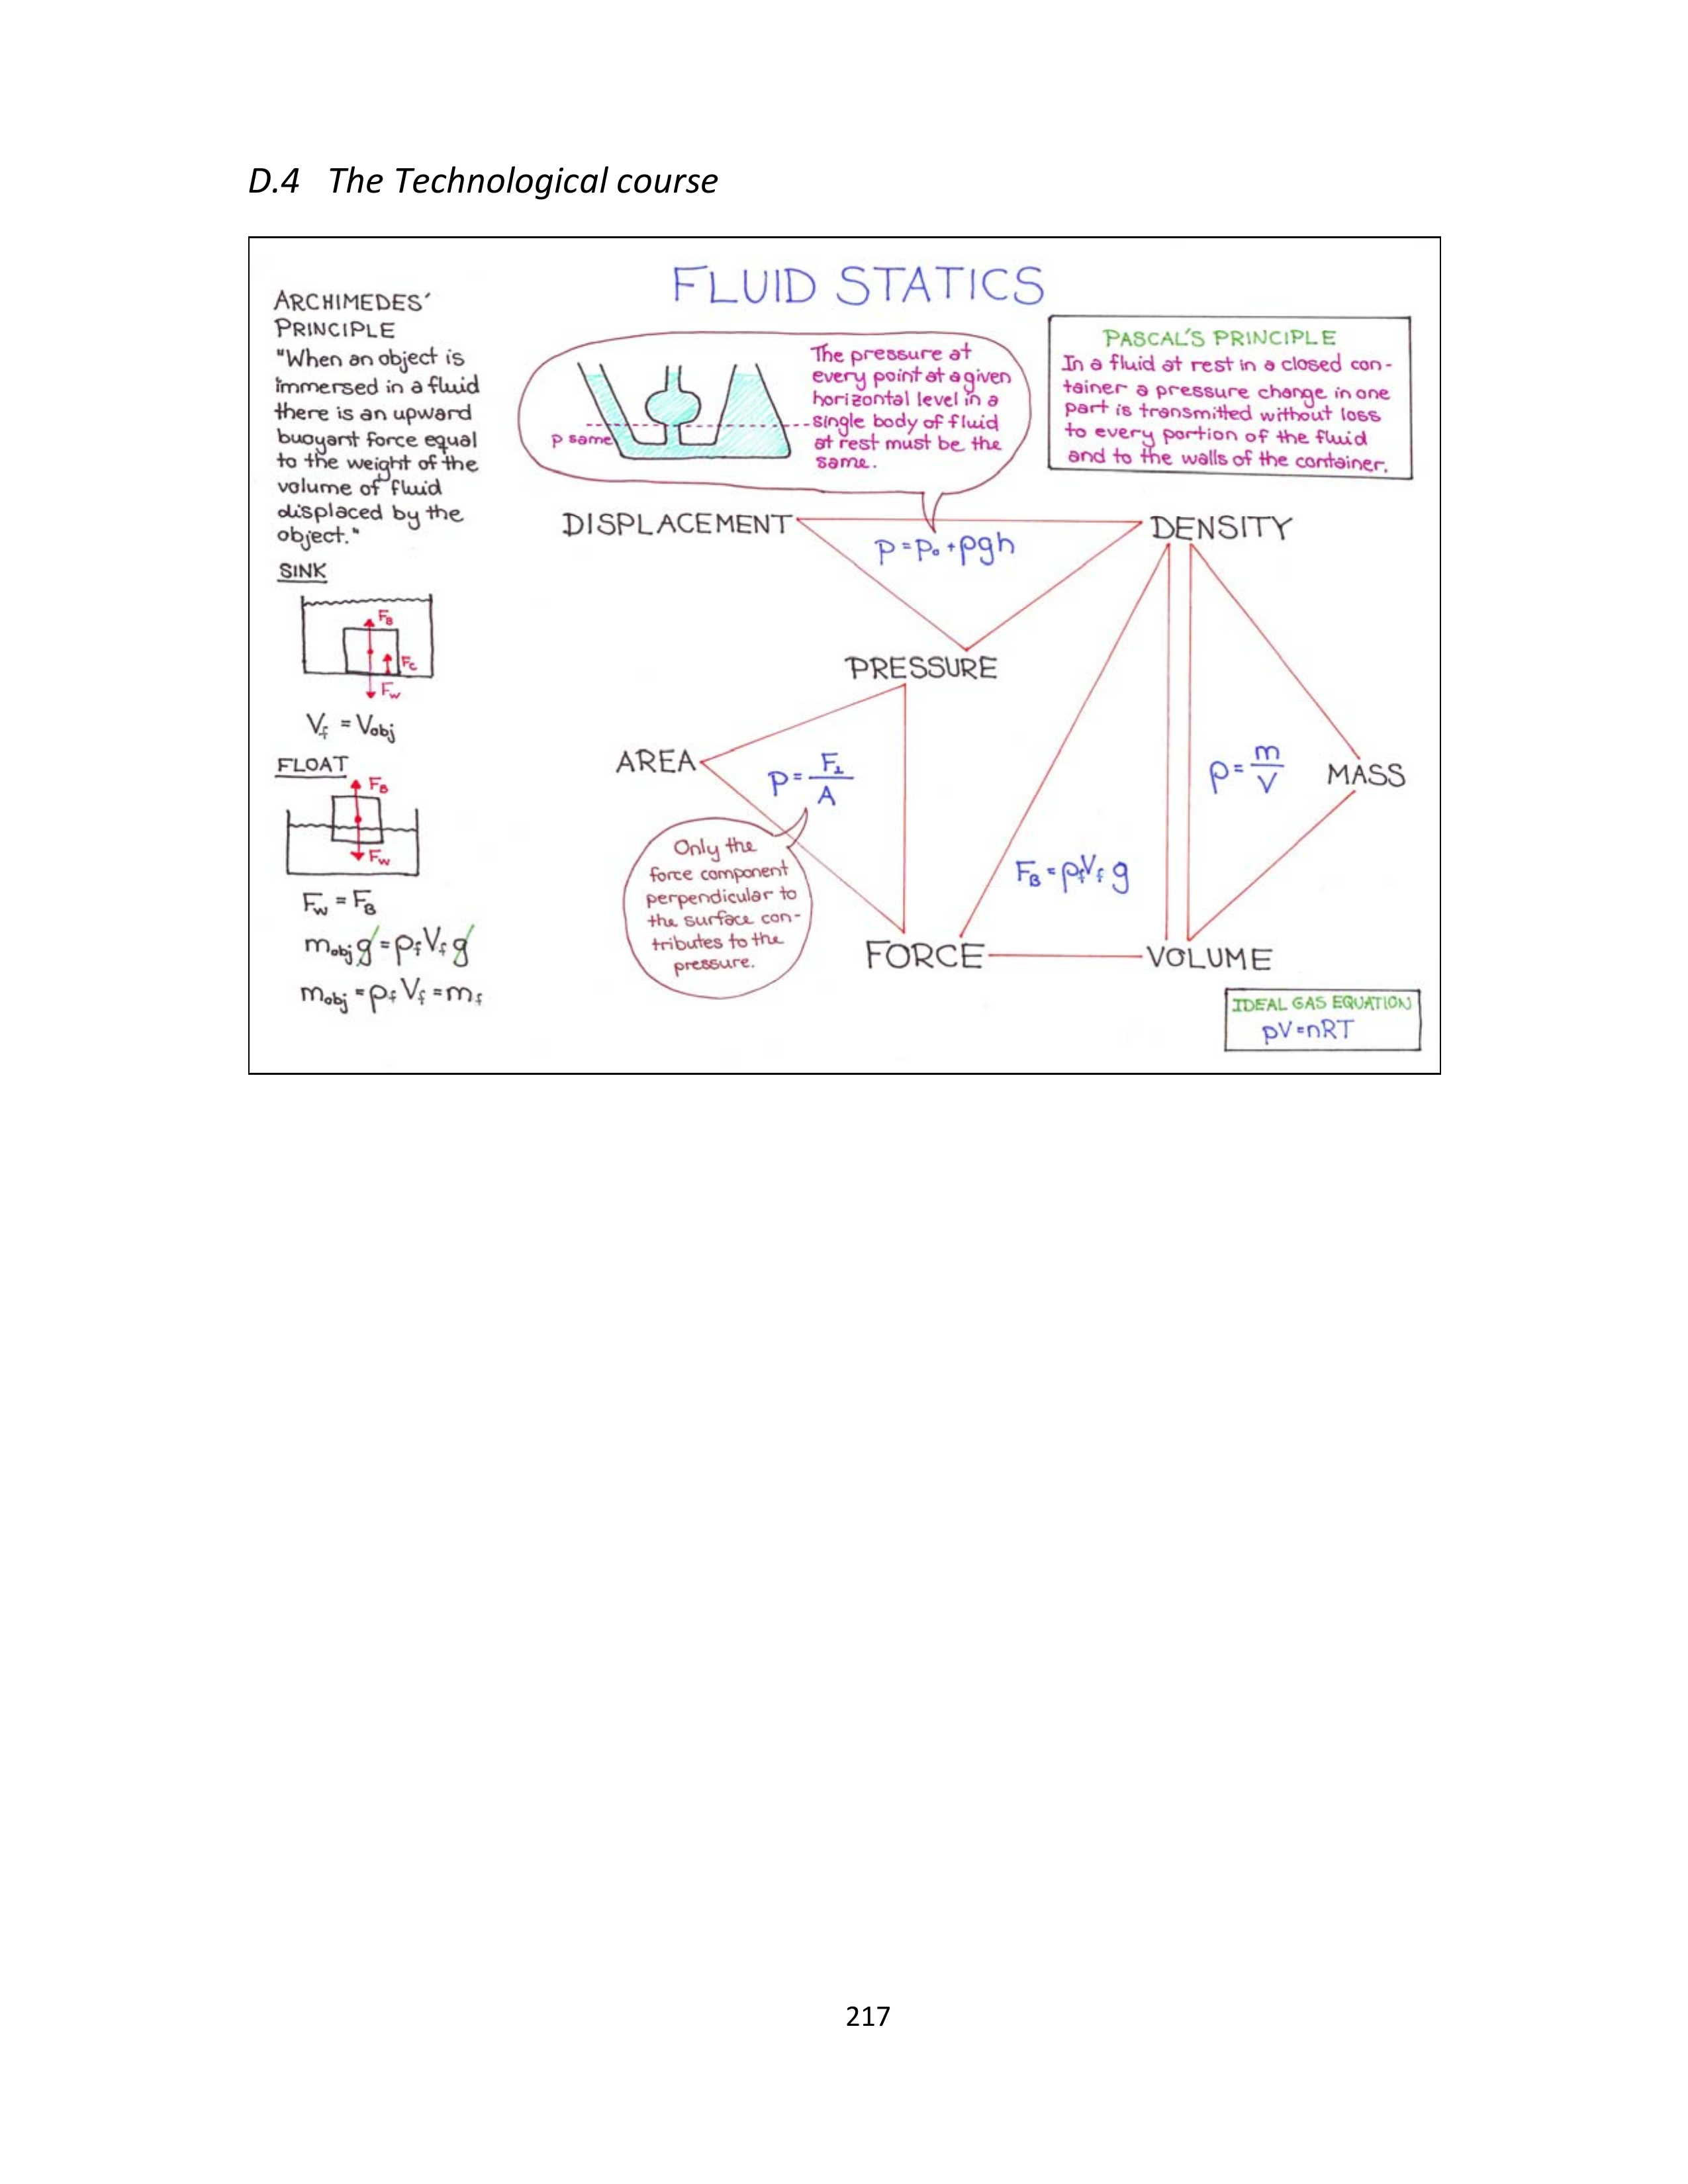 D.4 The Technological course
FLUID STATICS
ARCHIMEDES'
PRINCIPLE
"When an object is
immersed in a fluid
there is an upward
buoyant force equal
to the weight of the
volume of fluid
displaced by the
object."
SINK
F_B
F_C
F_W
V_f = V_obj
FLOAT
F_B
F_W
F_W = F_B
m_obj g = ρ_f V_f g
m_obj = ρ_f V_f = m_f
p same
The pressure at
every point at a given
horizontal level in a
single body of fluid
at rest must be the
same.
PASCAL'S PRINCIPLE
In a fluid at rest in a closed con-
tainer a pressure change in one
part is transmitted without loss
to every portion of the fluid
and to the walls of the container.
DISPLACEMENT
DENSITY
p = p₀ + ρgh
PRESSURE
AREA
p = F⊥/A
ρ = m/V
MASS
Only the
force component
perpendicular to
the surface con-
tributes to the
pressure.
F_B = ρ_f V_f g
FORCE
VOLUME
IDEAL GAS EQUATION
pV = nRT
217